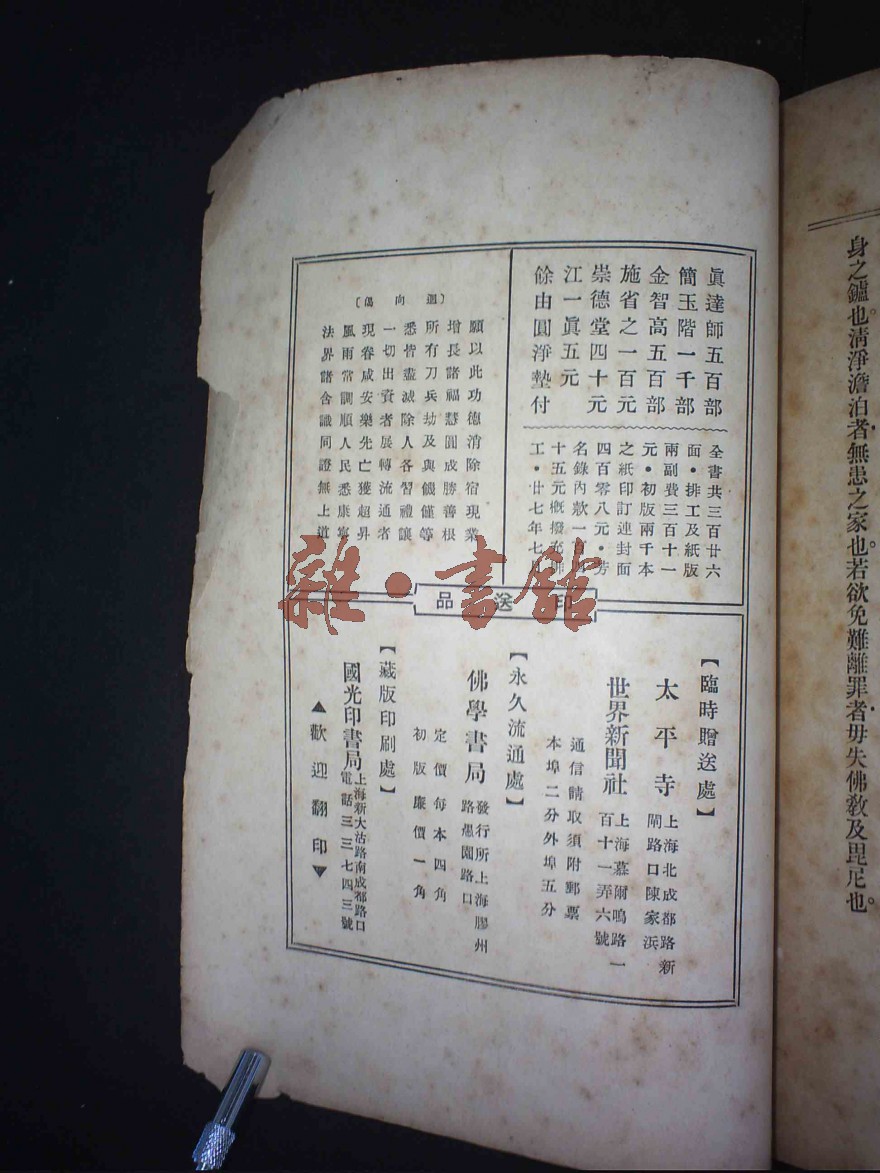 身之鑪也。清淨澹泊者。無患之家也。若欲免難離罪者。毋失佛敎及毘尼也。
眞達師五百部
簡玉階一千部
金智高五百部
施省之一百元
崇德堂四十元
江一眞五元
餘由圓淨墊付
全書共三百廿六
面・排工及紙版
兩副費三百十一
元・初版兩千本
之紙印訂連封面
四百零八元・芳
名錄內款一百
十五元槪撥充
工・廿七年七
〔迴向偈〕
願以此功德消除宿現業
增長諸福慧圓成勝善根
所有刀兵劫及與饑饉等
悉皆盡滅除人各習禮讓
一切出資者展轉流通者
現眷咸安樂先亡獲超昇
風雨常調順人民悉康寧
法界諸含識同證無上道
印送品
雜・書館
【臨時贈送處】
太平寺
上海北成都路新
閘路口陳家浜
世界新聞社
上海慕爾鳴路一
百十一弄六號
通信請取須附郵票
本埠二分外埠五分
【永久流通處】
佛學書局
發行所上海膠州
路愚園路口
定價每本四角
初版廉價一角
【藏版印刷處】
國光印書局
上海新大沽路南成都路口
電話三三七四三號
▲歡迎翻印▼